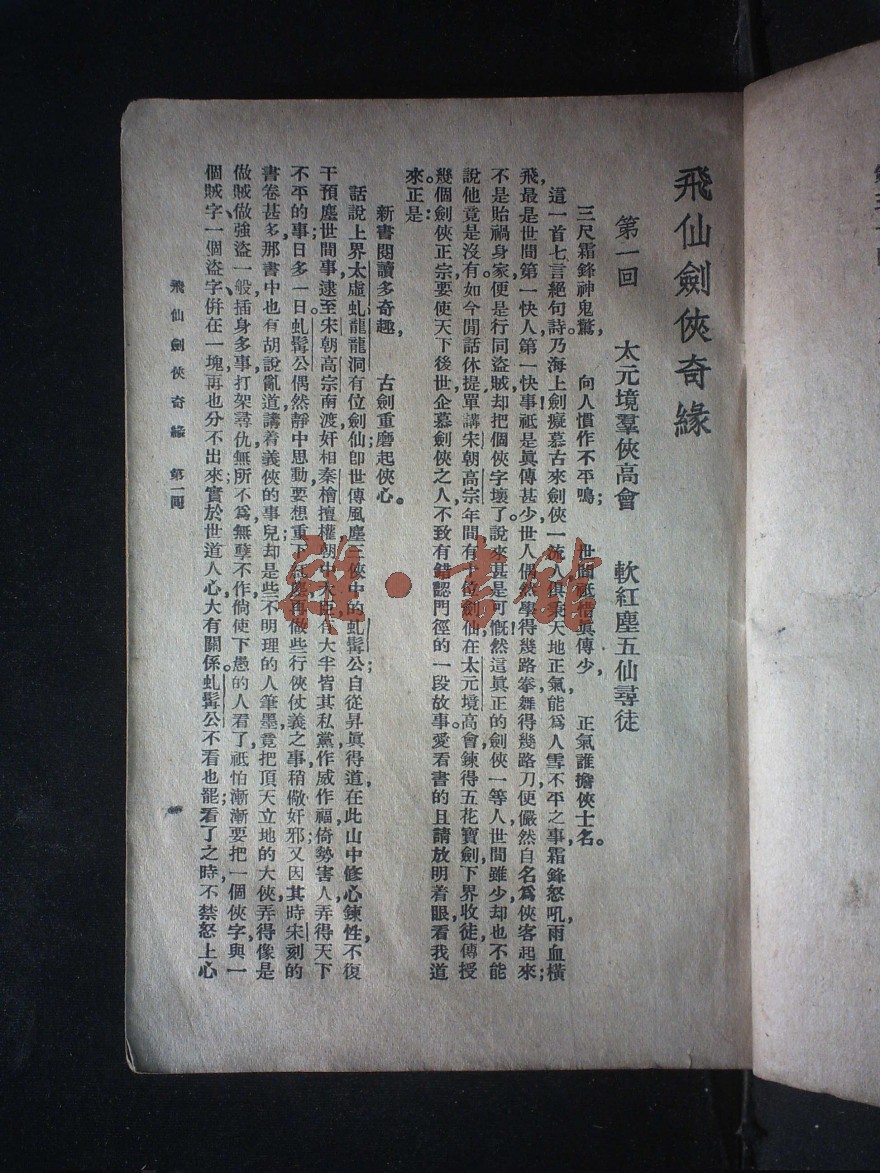 飛仙劍俠奇緣
第一回　太元境羣俠高會　軟紅塵五仙尋徒
三尺霜鋒神鬼驚，　向人慣作不平鳴；　世間祗惜眞傳少，　正氣誰擔俠士名。
這一首七言絕句詩，乃海上劍癡慕古來劍俠一流人俱秉天地正氣，能爲人雪不平之事，霜鋒怒吼，雨血橫
飛，最是世間第一快人，第一快事！祗是眞傳甚少，世人偶然學得幾路拳，舞得幾路刀，便儼然自名爲俠客起來；
不是貽禍身家，便是行同盜賊，却把個俠字壞了。說來甚是可慨！然這眞正的劍俠一等人，世間雖少，却也不能
說他竟是沒有。如今閒話休提，單講宋朝高宗年間，有十位劍仙在太元境高會，鍊得五花寶劍，下界收徒，傳授
幾個劍俠正宗，要使天下後世企慕劍俠之人，不致有錯認門徑的一段故事。愛看書的且請放明着眼，看我道
來。正是：
新書閱讀多奇趣，　古劍重磨起俠心。
話說上界太虛虬龍龍洞，有位劍仙，卽世傳風塵三俠中的虬髯公；自從昇眞得道，在此山中修心鍊性，不復
干預塵世間事；逮至宋朝高宗南渡，奸相秦檜擅權，朝中大臣有大半皆其私黨，作威作福，倚勢害人，弄得天下
不平的事日多一日。虬髯公偶然靜中思動，要想重下紅塵，再做些行俠仗義之事，稍儆奸邪；又因其時宋刻的
書卷甚多，那書中也有胡說亂道，講着義俠的事兒，却是些不明理的人筆墨，竟把頂天立地的大俠弄得像是
做賊、做強盜一般，插身多事，打架尋仇，無所不爲，無孽不作；倘使下愚的人看了，祗怕漸漸要把一個俠字與一
個賊字、一個盜字併在一塊，再也分不出來，實於世道人心大有關係。虬髯公不看也罷；看了之時，不禁怒上心
飛仙劍俠奇緣　第一回
一
雜·書館